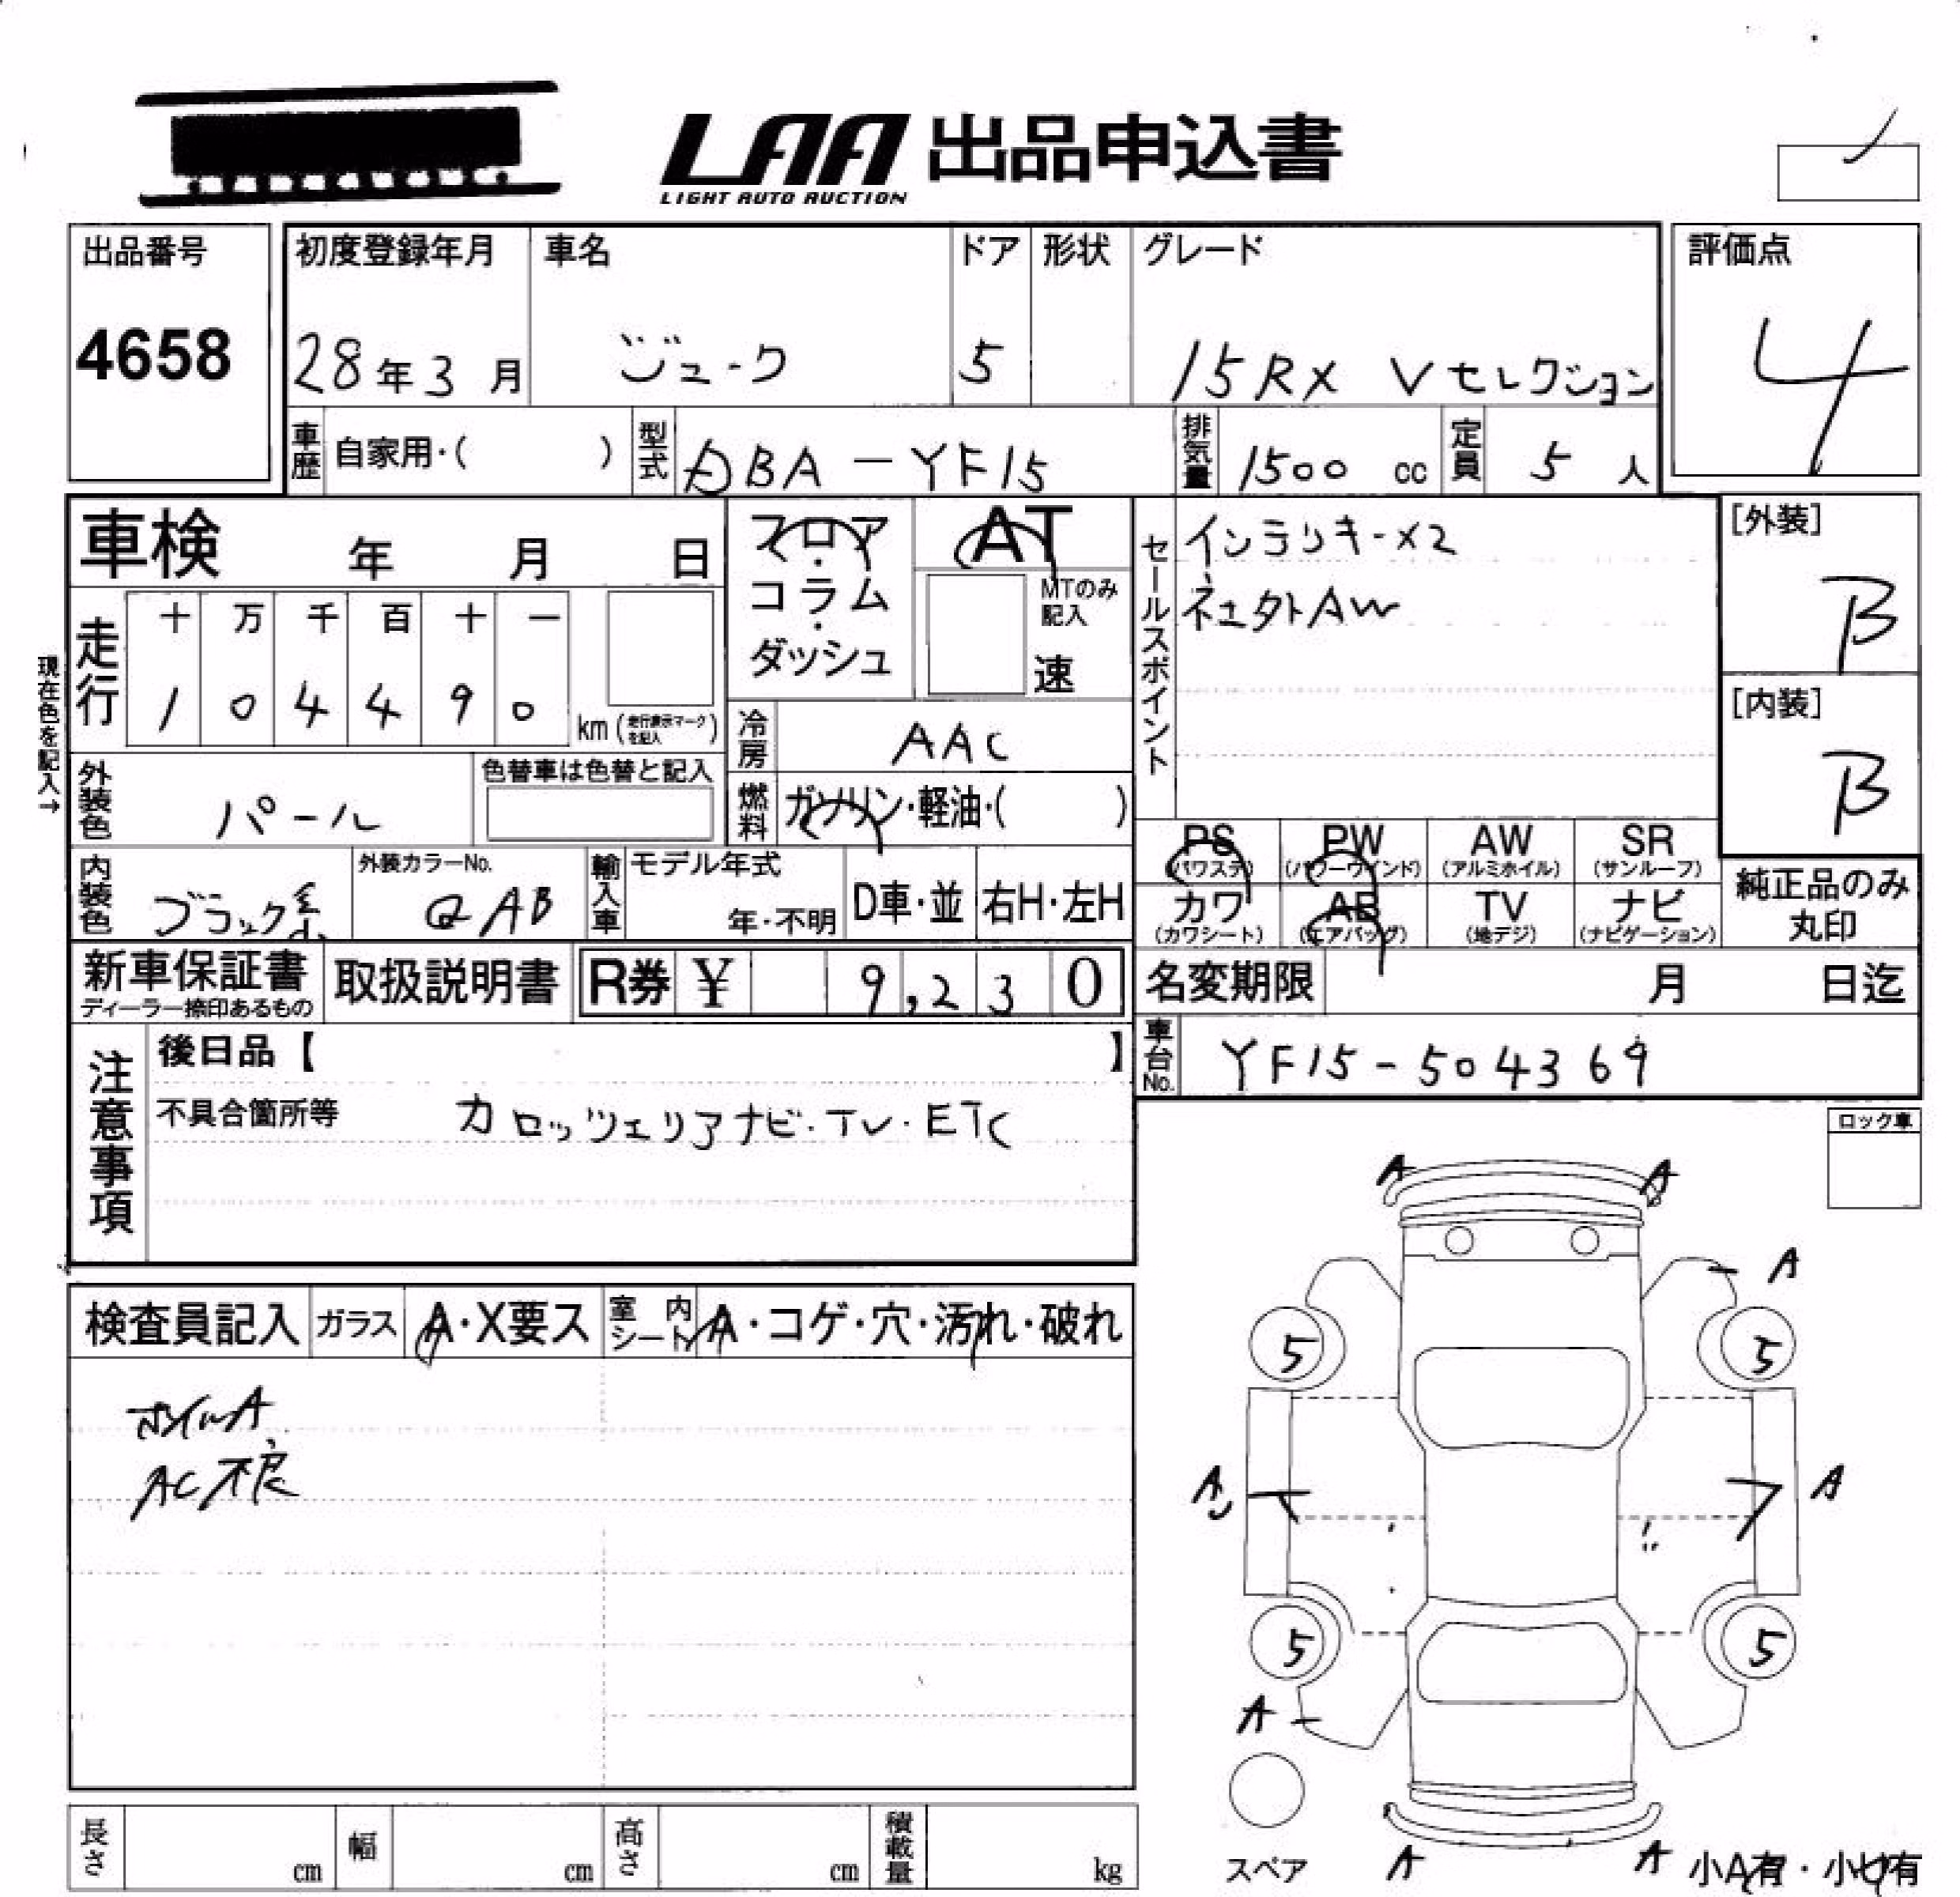 LAA 出品申込書
LIGHT AUTO AUCTION
出品番号
4658
初度登録年月
28年3月
車名
ジューク
ドア
5
形状
グレード
15RX Vセレクション
評価点
4
車歴 自家用・( )
型式 DBA-YF15
排気量 1500 cc
定員 5 人
車検 年 月 日
フロア・コラム・ダッシュ
AT
MTのみ記入
速
セールスポイント
インテリキーx2
[外装]
B
[内装]
B
現在色を記入→
走行
十 万 千 百 十 一
1 0 4 4 9 0
km (走行表示マークを記入)
冷房 AAC
外装色 パール
色替車は色替と記入
燃料 ガソリン・軽油・( )
PS (パワステ)
PW (パワーウインド)
AW (アルミホイル)
SR (サンルーフ)
内装色 ブラック系
外装カラーNo.
QAB
輸入車
モデル年式
年・不明
D車・並
右H・左H
カワ (カワシート)
AB (エアバッグ)
TV (地デジ)
ナビ (ナビゲーション)
純正品のみ
丸印
新車保証書
ディーラー捺印あるもの
取扱説明書
R券 ¥ 9,230
名変期限 月 日迄
車台No. YF15-504369
注意事項
後日品【 】
不具合箇所等 カロッツェリアナビ・TV・ETC
ロック車
検査員記入
ガラス A・X要ス
室内シート A・コゲ・穴・汚れ・破れ
ホイルA
AC不良
A A
A
5 5
A A
5 5
A
スペア
A A
小A有・小U有
長さ cm
幅 cm
高さ cm
積載量 kg